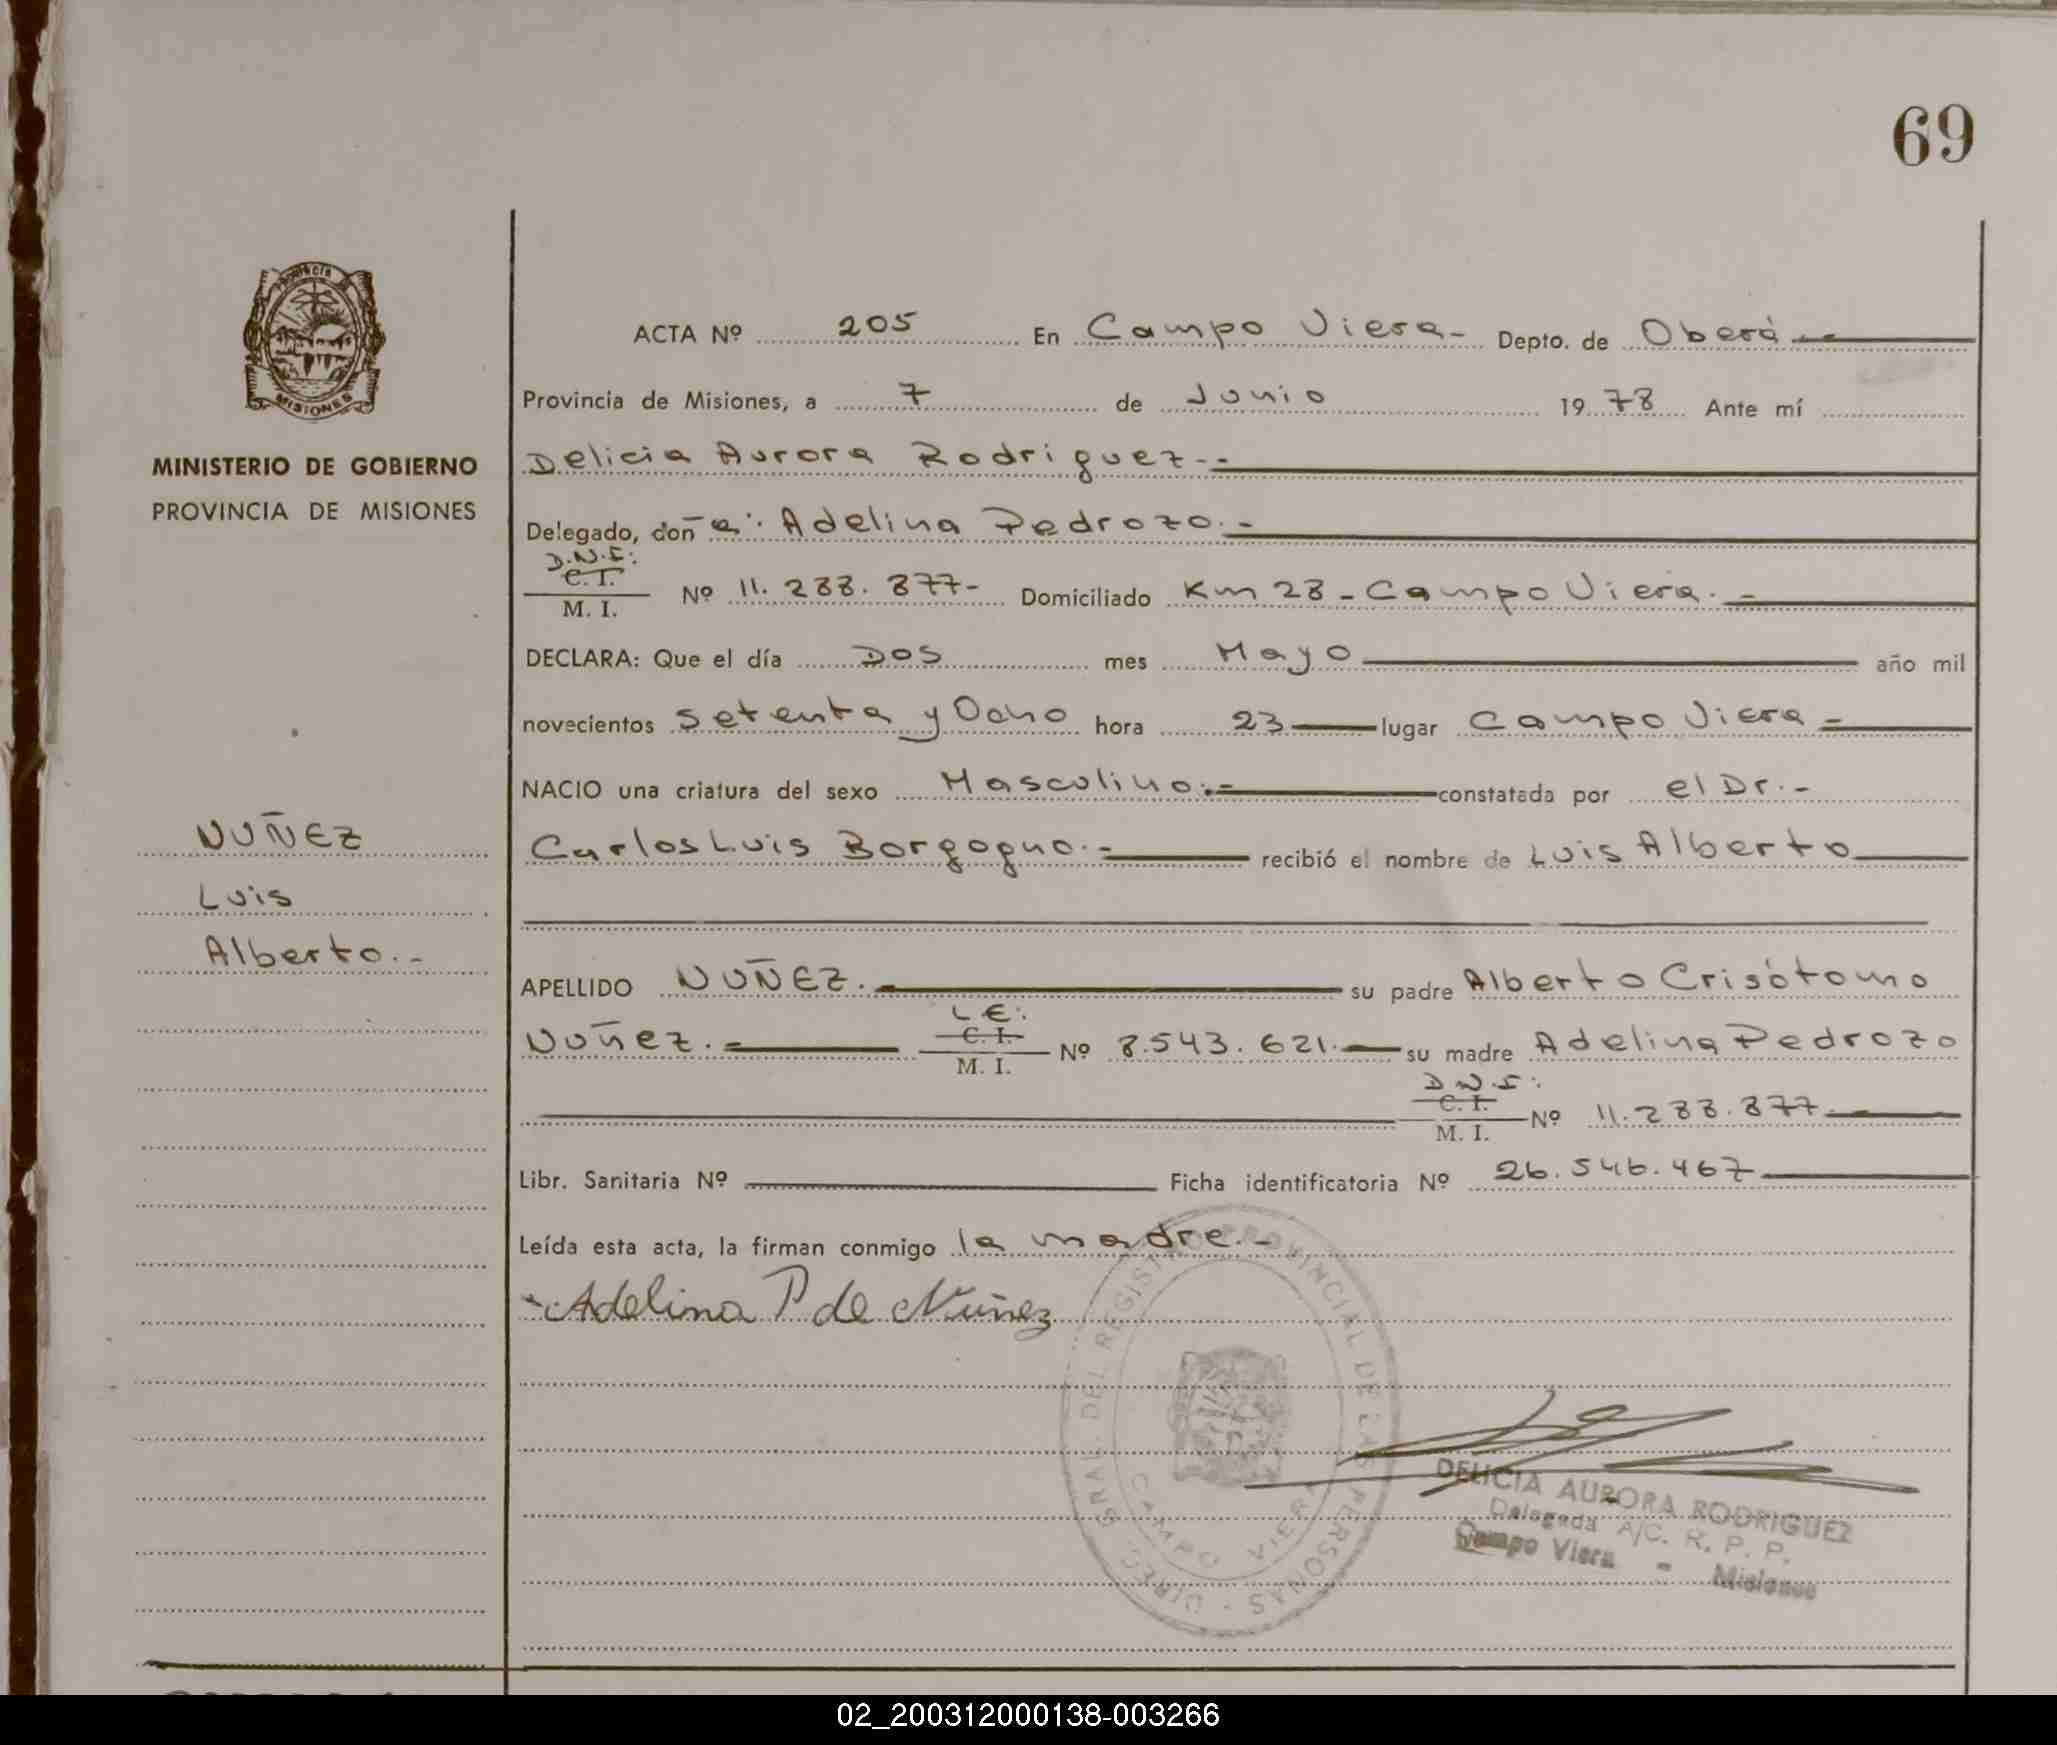 69
Provincia
MISIONES
MINISTERIO DE GOBIERNO
PROVINCIA DE MISIONES
NUÑEZ
Luis
Alberto.-
ACTA Nº 205 En Campo Viera- Depto. de Oberá
Provincia de Misiones, a 7 de Junio 1978 Ante mí
Delicia Aurora Rodriguez.-
Delegado, don-a: Adelina Pedrozo.-
D.N.I:
C. I.
M. I. Nº 11.288.877- Domiciliado Km 28 - Campo Viera.-
DECLARA: Que el día Dos mes Mayo año mil
novecientos setenta y Ocho hora 23 lugar Campo Viera-
NACIO una criatura del sexo Masculino.- constatada por el Dr.-
Carlos Luis Borgogno.- recibió el nombre de Luis Alberto
APELLIDO NUÑEZ.- su padre Alberto Crisótomo
L E:
C. I.
Nuñez.- M. I. Nº 8.543.621.- su madre Adelina Pedrozo
D.N.I:
C. I.
M. I. Nº 11.288.877.-
Libr. Sanitaria Nº Ficha identificatoria Nº 26.546.467
Leída esta acta, la firman conmigo la madre.-
Adelina P de Nuñez
DIREC. GRAL. DEL REGISTRO PROVINCIAL DE LAS PERSONAS
CAMPO VIERA
DELICIA AURORA RODRIGUEZ
Delegada A/C. R. P. P.
Campo Viera - Misiones
02_200312000138-003266